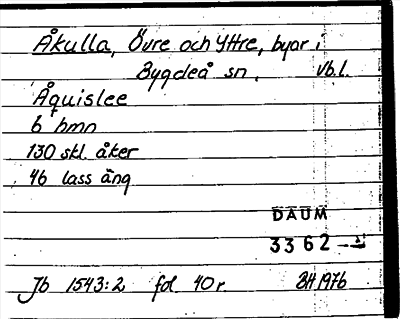 Åkulla, Övre och Yttre, byar i
Bygdeå sn. Vb.l.
Åquislee
6 hmn
130 skl åker
46 lass äng
DAUM
3362
Jb 1543:2 fol 40r. BH 1976